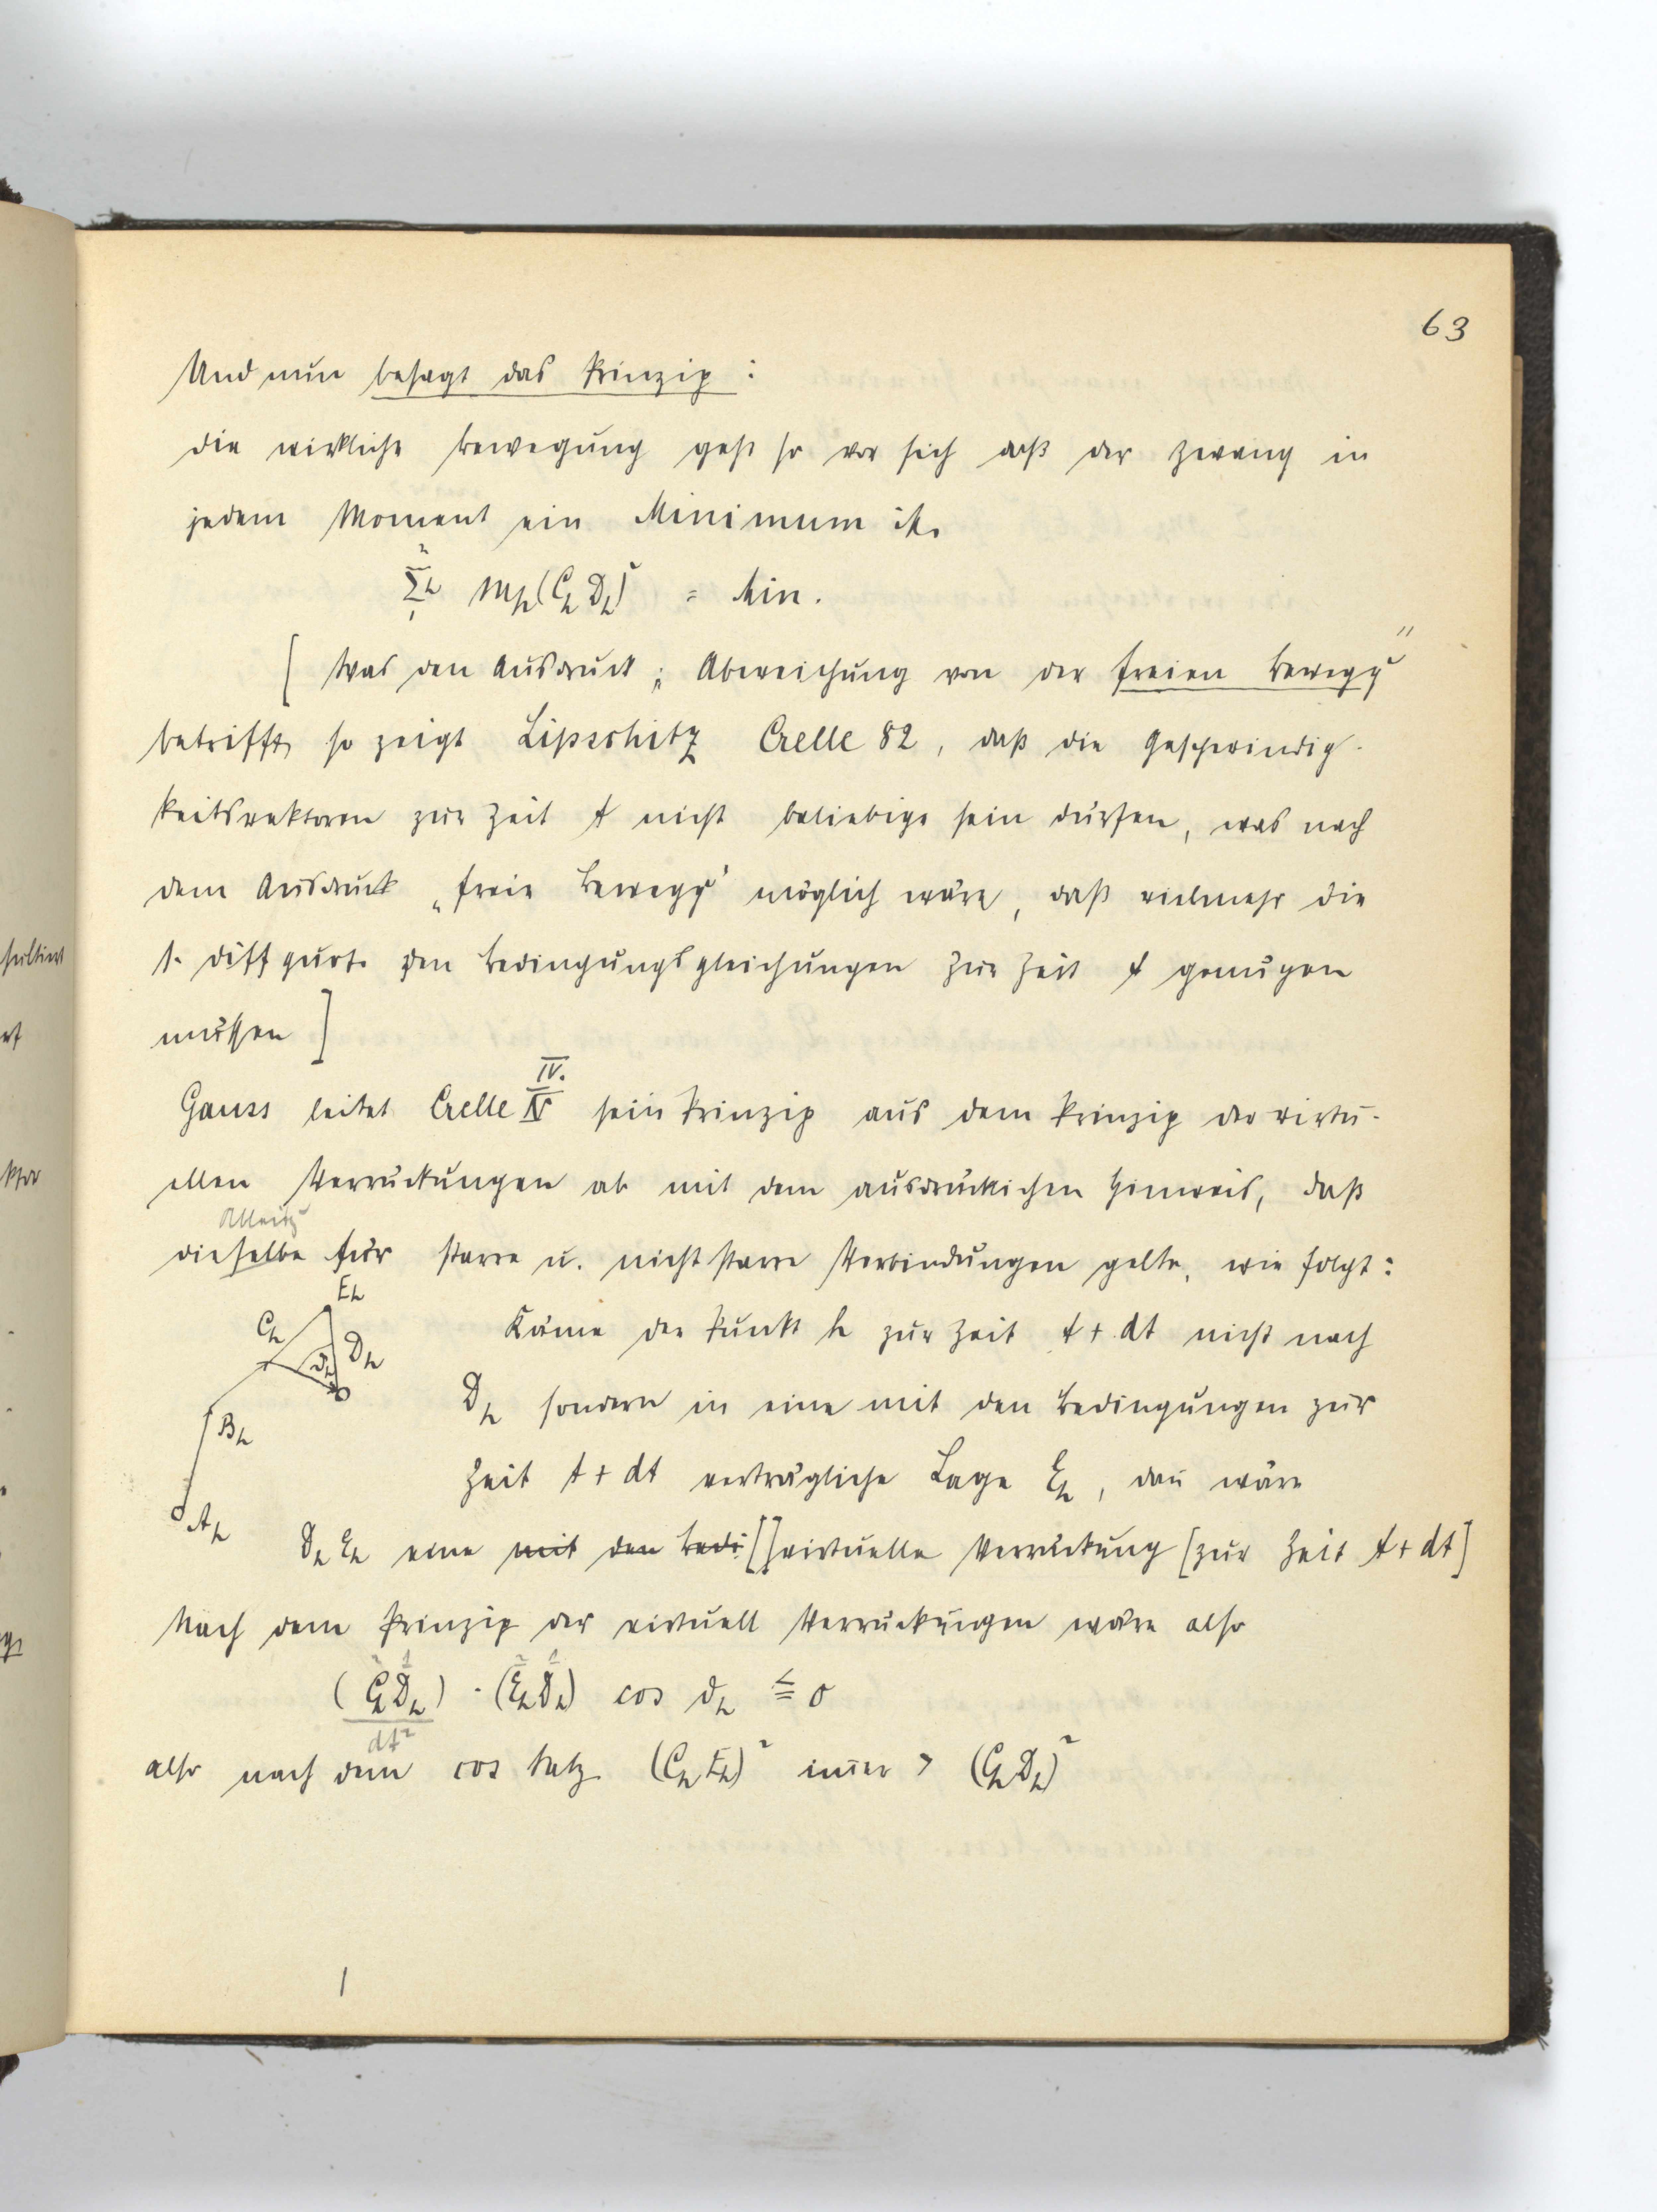 63
Und nun besagt das Prinzip:
die wirkliche Bewegung geht so vor sich daß der Zwang in
jedem Moment ein Minimum ist.
n Σh 1 m_h (C_h D_h)² = Min.
[ Was den Ausdruck „Abweichung von der freien Bewegg"
betrifft, so zeigt Lipschitz Crelle 82, daß die Geschwindig-
keitsvektoren zur Zeit t nicht beliebige sein dürfen, was nach
dem Ausdruck „freie Bewegg" möglich wäre, daß vielmehr die
1. Diff quot. den Bedingungsgleichungen zur Zeit t genügen
müssen ]
IV.
Gauss leitet Crelle IV sein Prinzip aus dem Prinzip der virtu-
ellen Verrückungen ab mit dem ausdrücklichen Hinweis, daß
Ableitg
dieselbe für starre u. nicht starre Verbindungen gelte, wie folgt:
E_h
C_h D_h
ϑ_h
B_h
A_h
Käme der Punkt h zur Zeit t + dt nicht nach
D_h sondern in eine mit den Bedingungen zur
Zeit t + dt verträgliche Lage E_h, dañ wäre
D_h E_h eine mit den Bedi [] virtuelle Verrückung [zur Zeit t + dt]
Nach dem Prinzip der virtuell Verrückungen wäre also
(C_h D_h) · (E_h D_h) cos ϑ_h ≦ 0
dt²
also nach dem cos Satz (C_h E_h)² im̄er > (C_h D_h)²